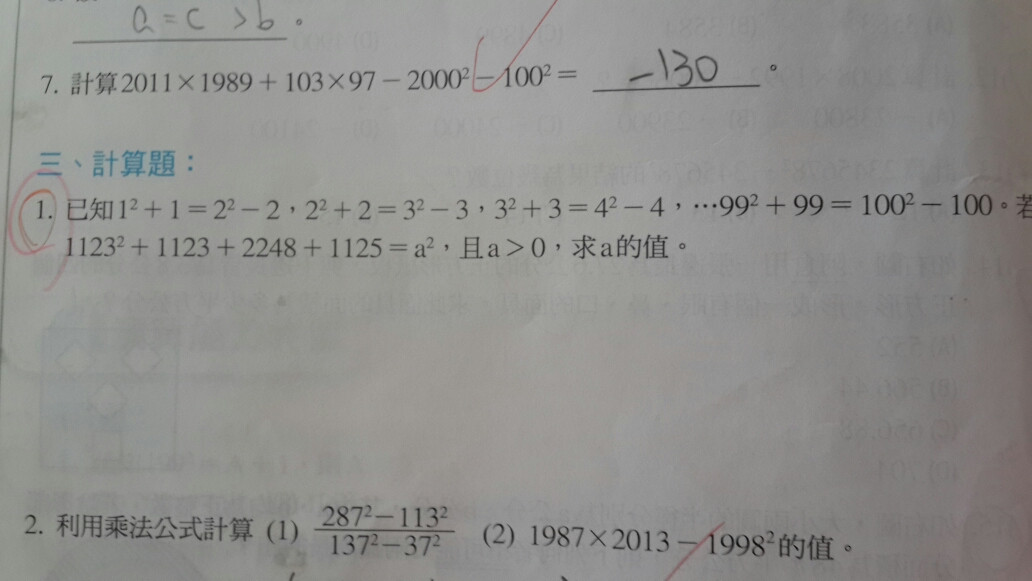 a = c > b。
7. 計算2011×1989＋103×97－2000²－100²＝ －130 。
三、計算題：
1. 已知1²＋1＝2²－2，2²＋2＝3²－3，3²＋3＝4²－4，…99²＋99＝100²－100。若
1123²＋1123＋2248＋1125＝a²，且a＞0，求a的值。
2. 利用乘法公式計算 (1) (287²－113²)/(137²－37²) (2) 1987×2013－1998²的值。